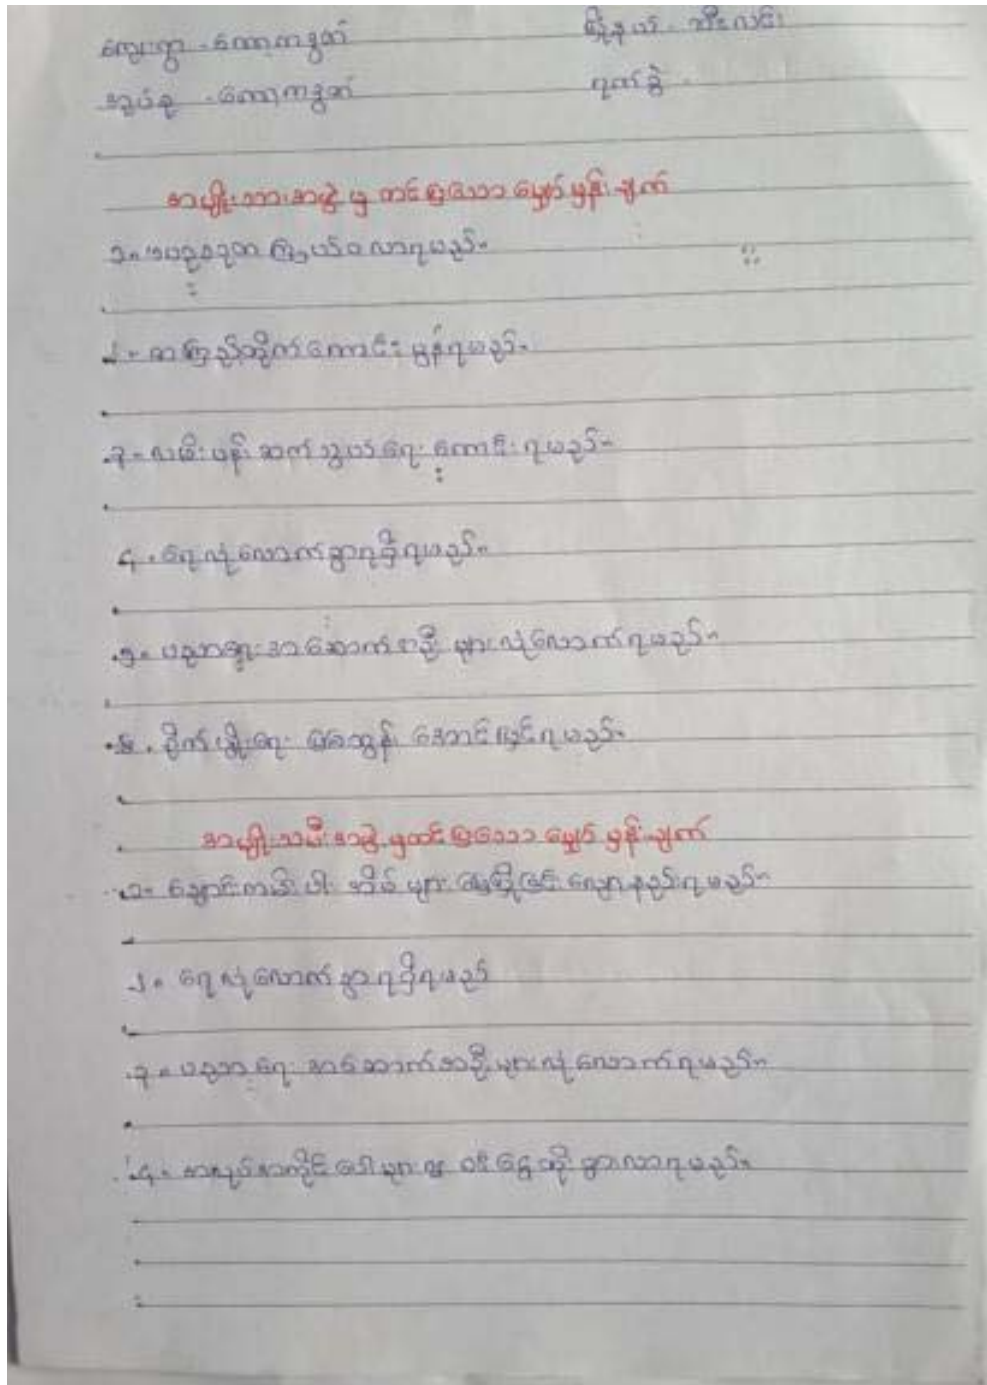 ကျေးရွာ - ကော့ကဒွတ် မြို့နယ် - သီးလင်း
အုပ်စု - ကော့ကဒွတ် ရက်စွဲ -
အမျိုးသားအဖွဲ့မှ တင်ပြသော မျှော်မှန်းချက်
၁။ ကြွယ်ဝလာရမည်။
၂။ အကြည့်တိုက်ကောင်းမွန်ရမည်။
၃။ လမ်းပန်းဆက်သွယ်ရေးကောင်းရမည်။
၄. ရေလုံလောက်စွာရရှိရမည်။
၅။ ပညာရေးအဆောက်အဦးများလုံလောက်ရမည်။
၆. စိုက်ပျိုးရေး မြေတွန်း အောင်မြင်ရမည်။
အမျိုးသမီးအဖွဲ့မှတင်ပြသော မျှော်မှန်းချက်
၁။ ချောင်းကမ်းပါး အိမ်များ မြေပြိုခြင်း လျော့နည်းရမည်။
၂။ ရေလုံလောက်စွာရရှိရမည်
၃။ ပညာရေး အဆောက်အဦးများလုံလောက်ရမည်။
၄။ အလုပ်အကိုင်ပေါများ၍ ဝင်ငွေတိုးပွားလာရမည်။